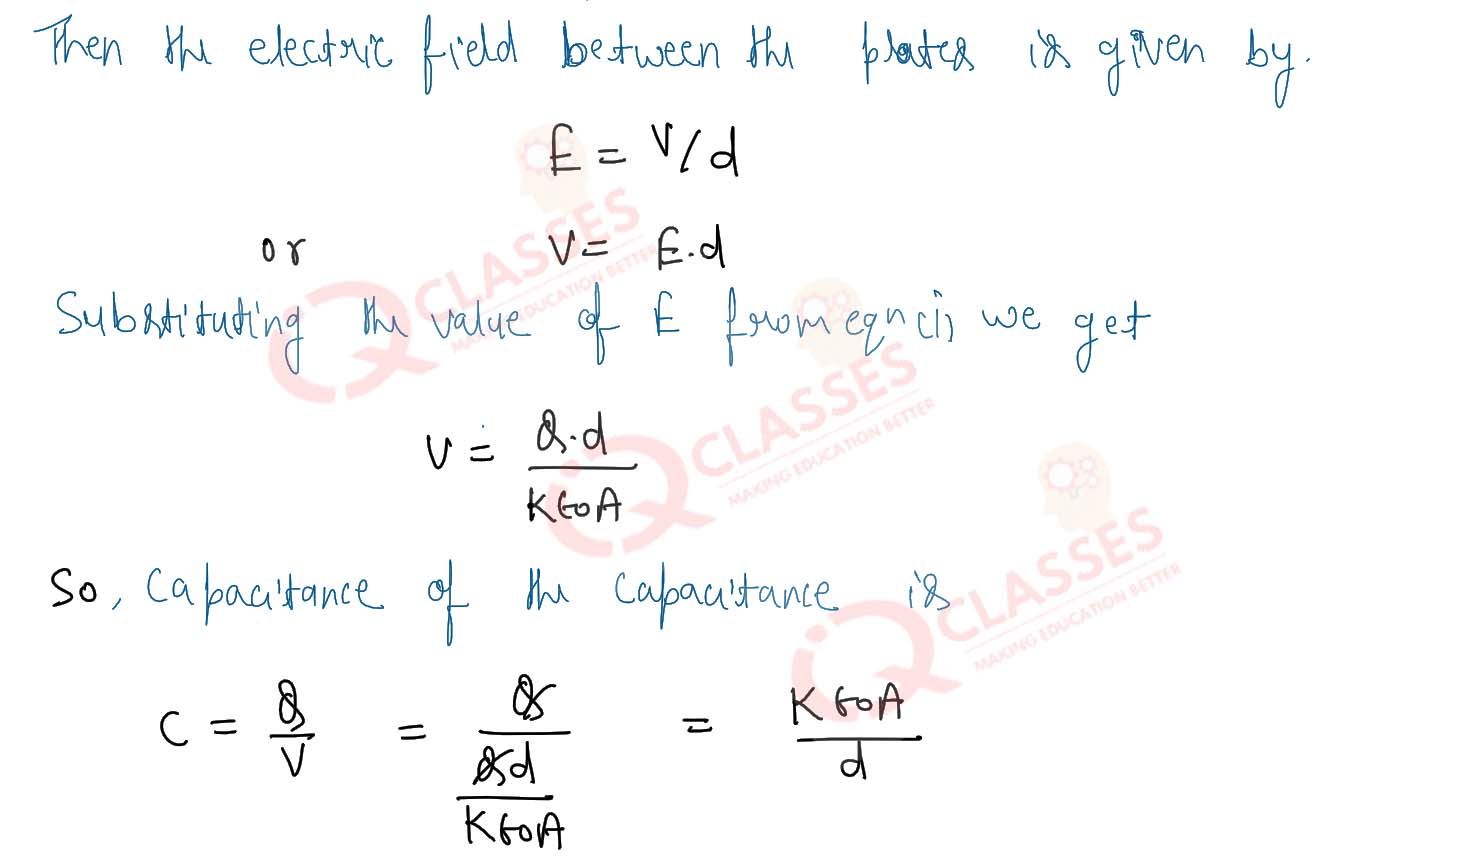 Then the electric field between the plates is given by.
E = V/d
or V = E.d
Substituting the value of E from eqn (i) we get
V = Q.d / Kε0A
So, Capacitance of the Capacitance is
C = Q/V = Q / (Qd / Kε0A) = Kε0A / d
IQ CLASSES
MAKING EDUCATION BETTER
IQ CLASSES
MAKING EDUCATION BETTER
IQ CLASSES
MAKING EDUCATION BETTER